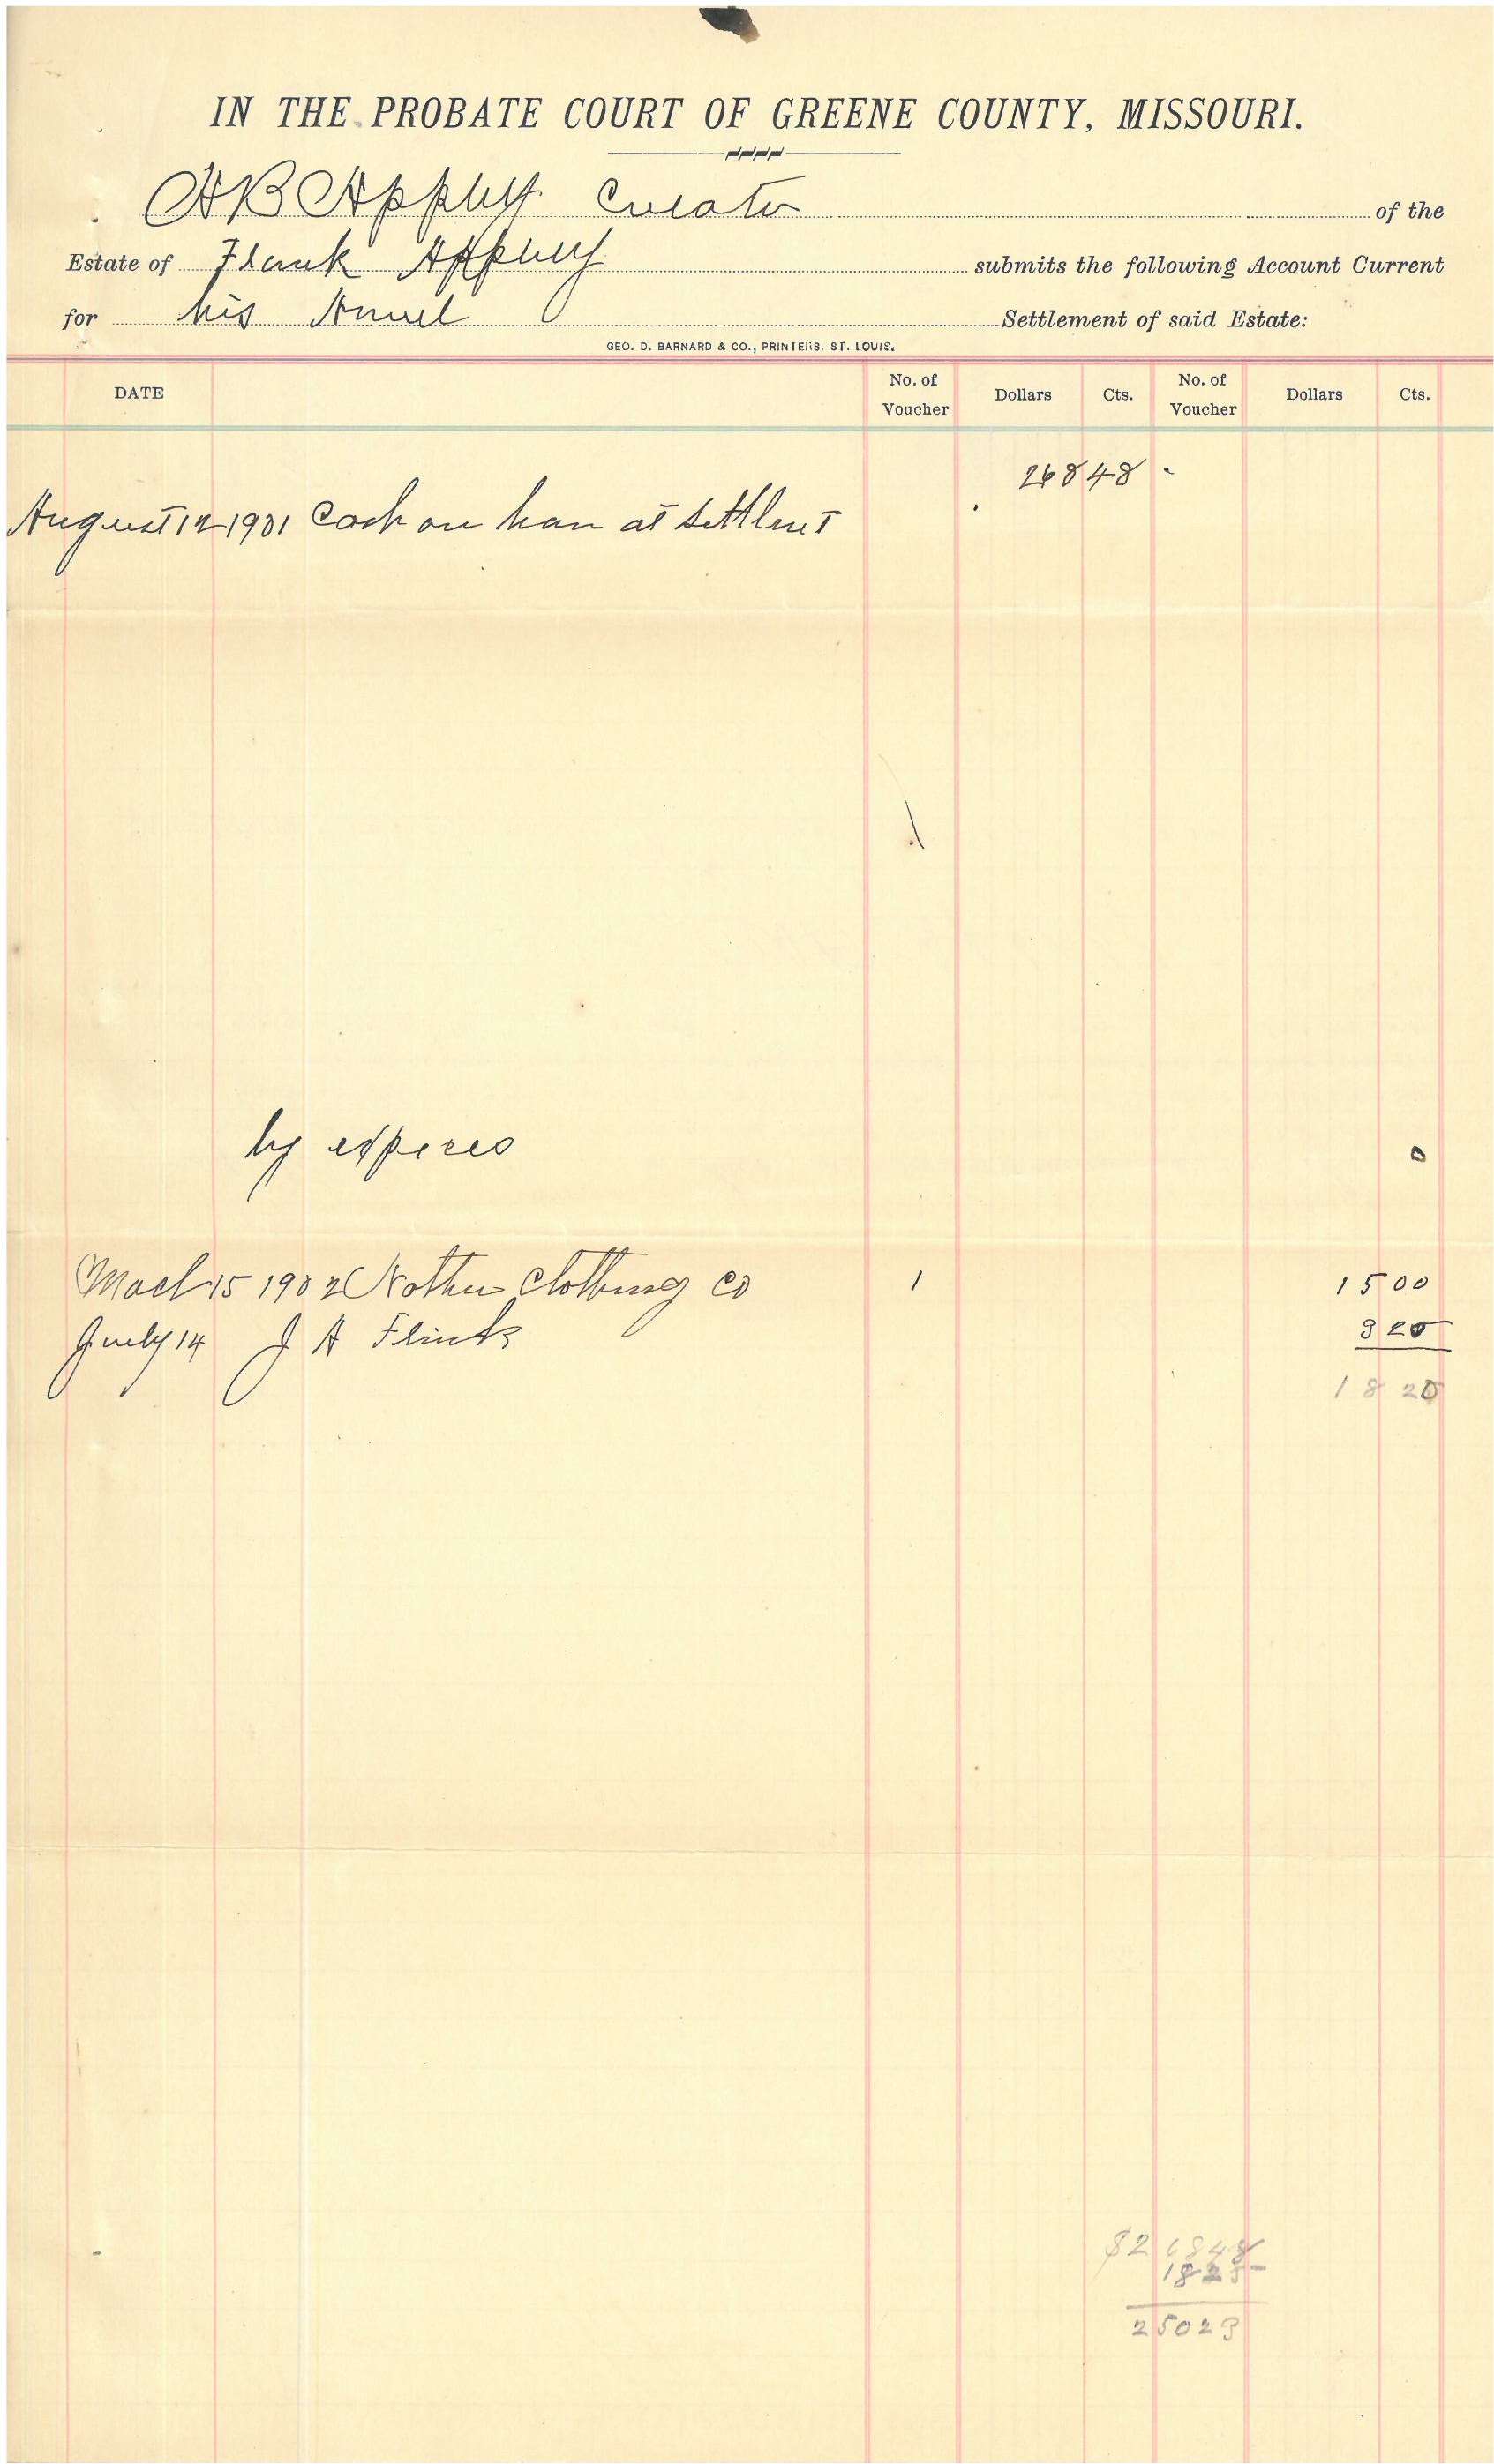 IN THE PROBATE COURT OF GREENE COUNTY, MISSOURI.
H B Appleby Curator of the
Estate of Frank Appleby submits the following Account Current
for his Annuel Settlement of said Estate:
GEO. D. BARNARD & CO., PRINTERS. ST. LOUIS.
DATE No. of Voucher Dollars Cts. No. of Voucher Dollars Cts.
268 48
August 12 1901 Cash on han at settlmt
by
0
15 1902 Clothing Co 1 15 00
July 14 J A 3 25
18 25
$268 48
18 25
250 23